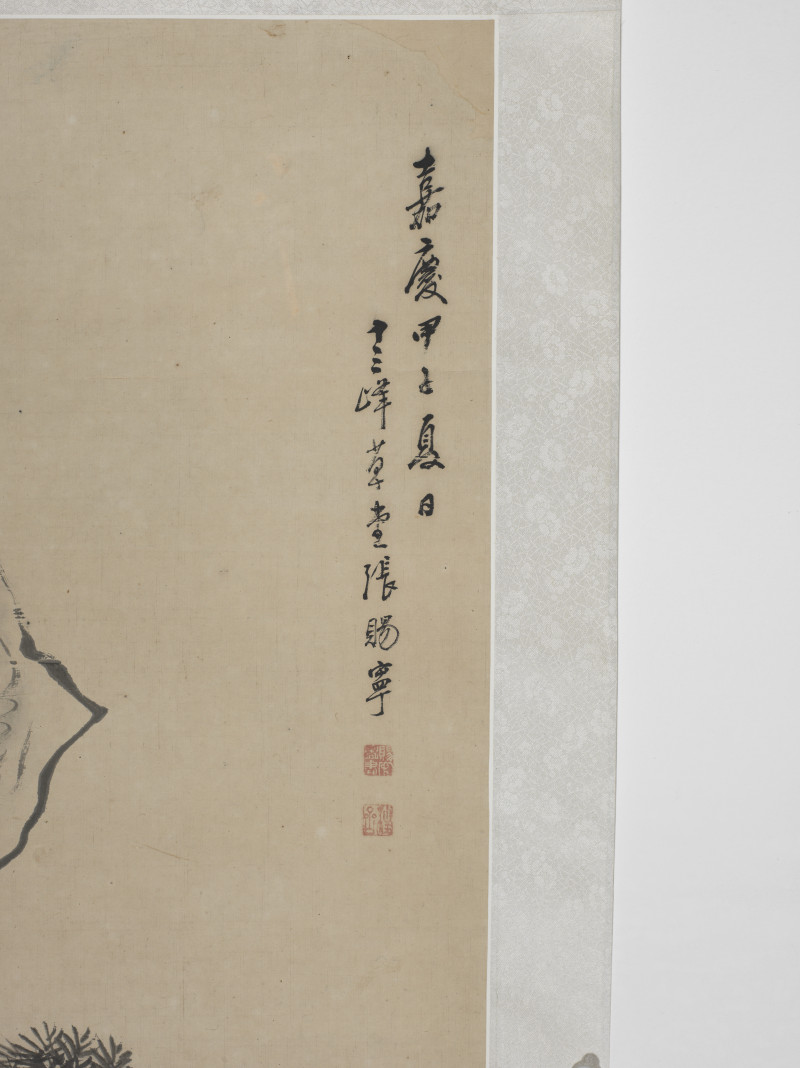 嘉慶甲子夏日
十三峰草堂張賜寧